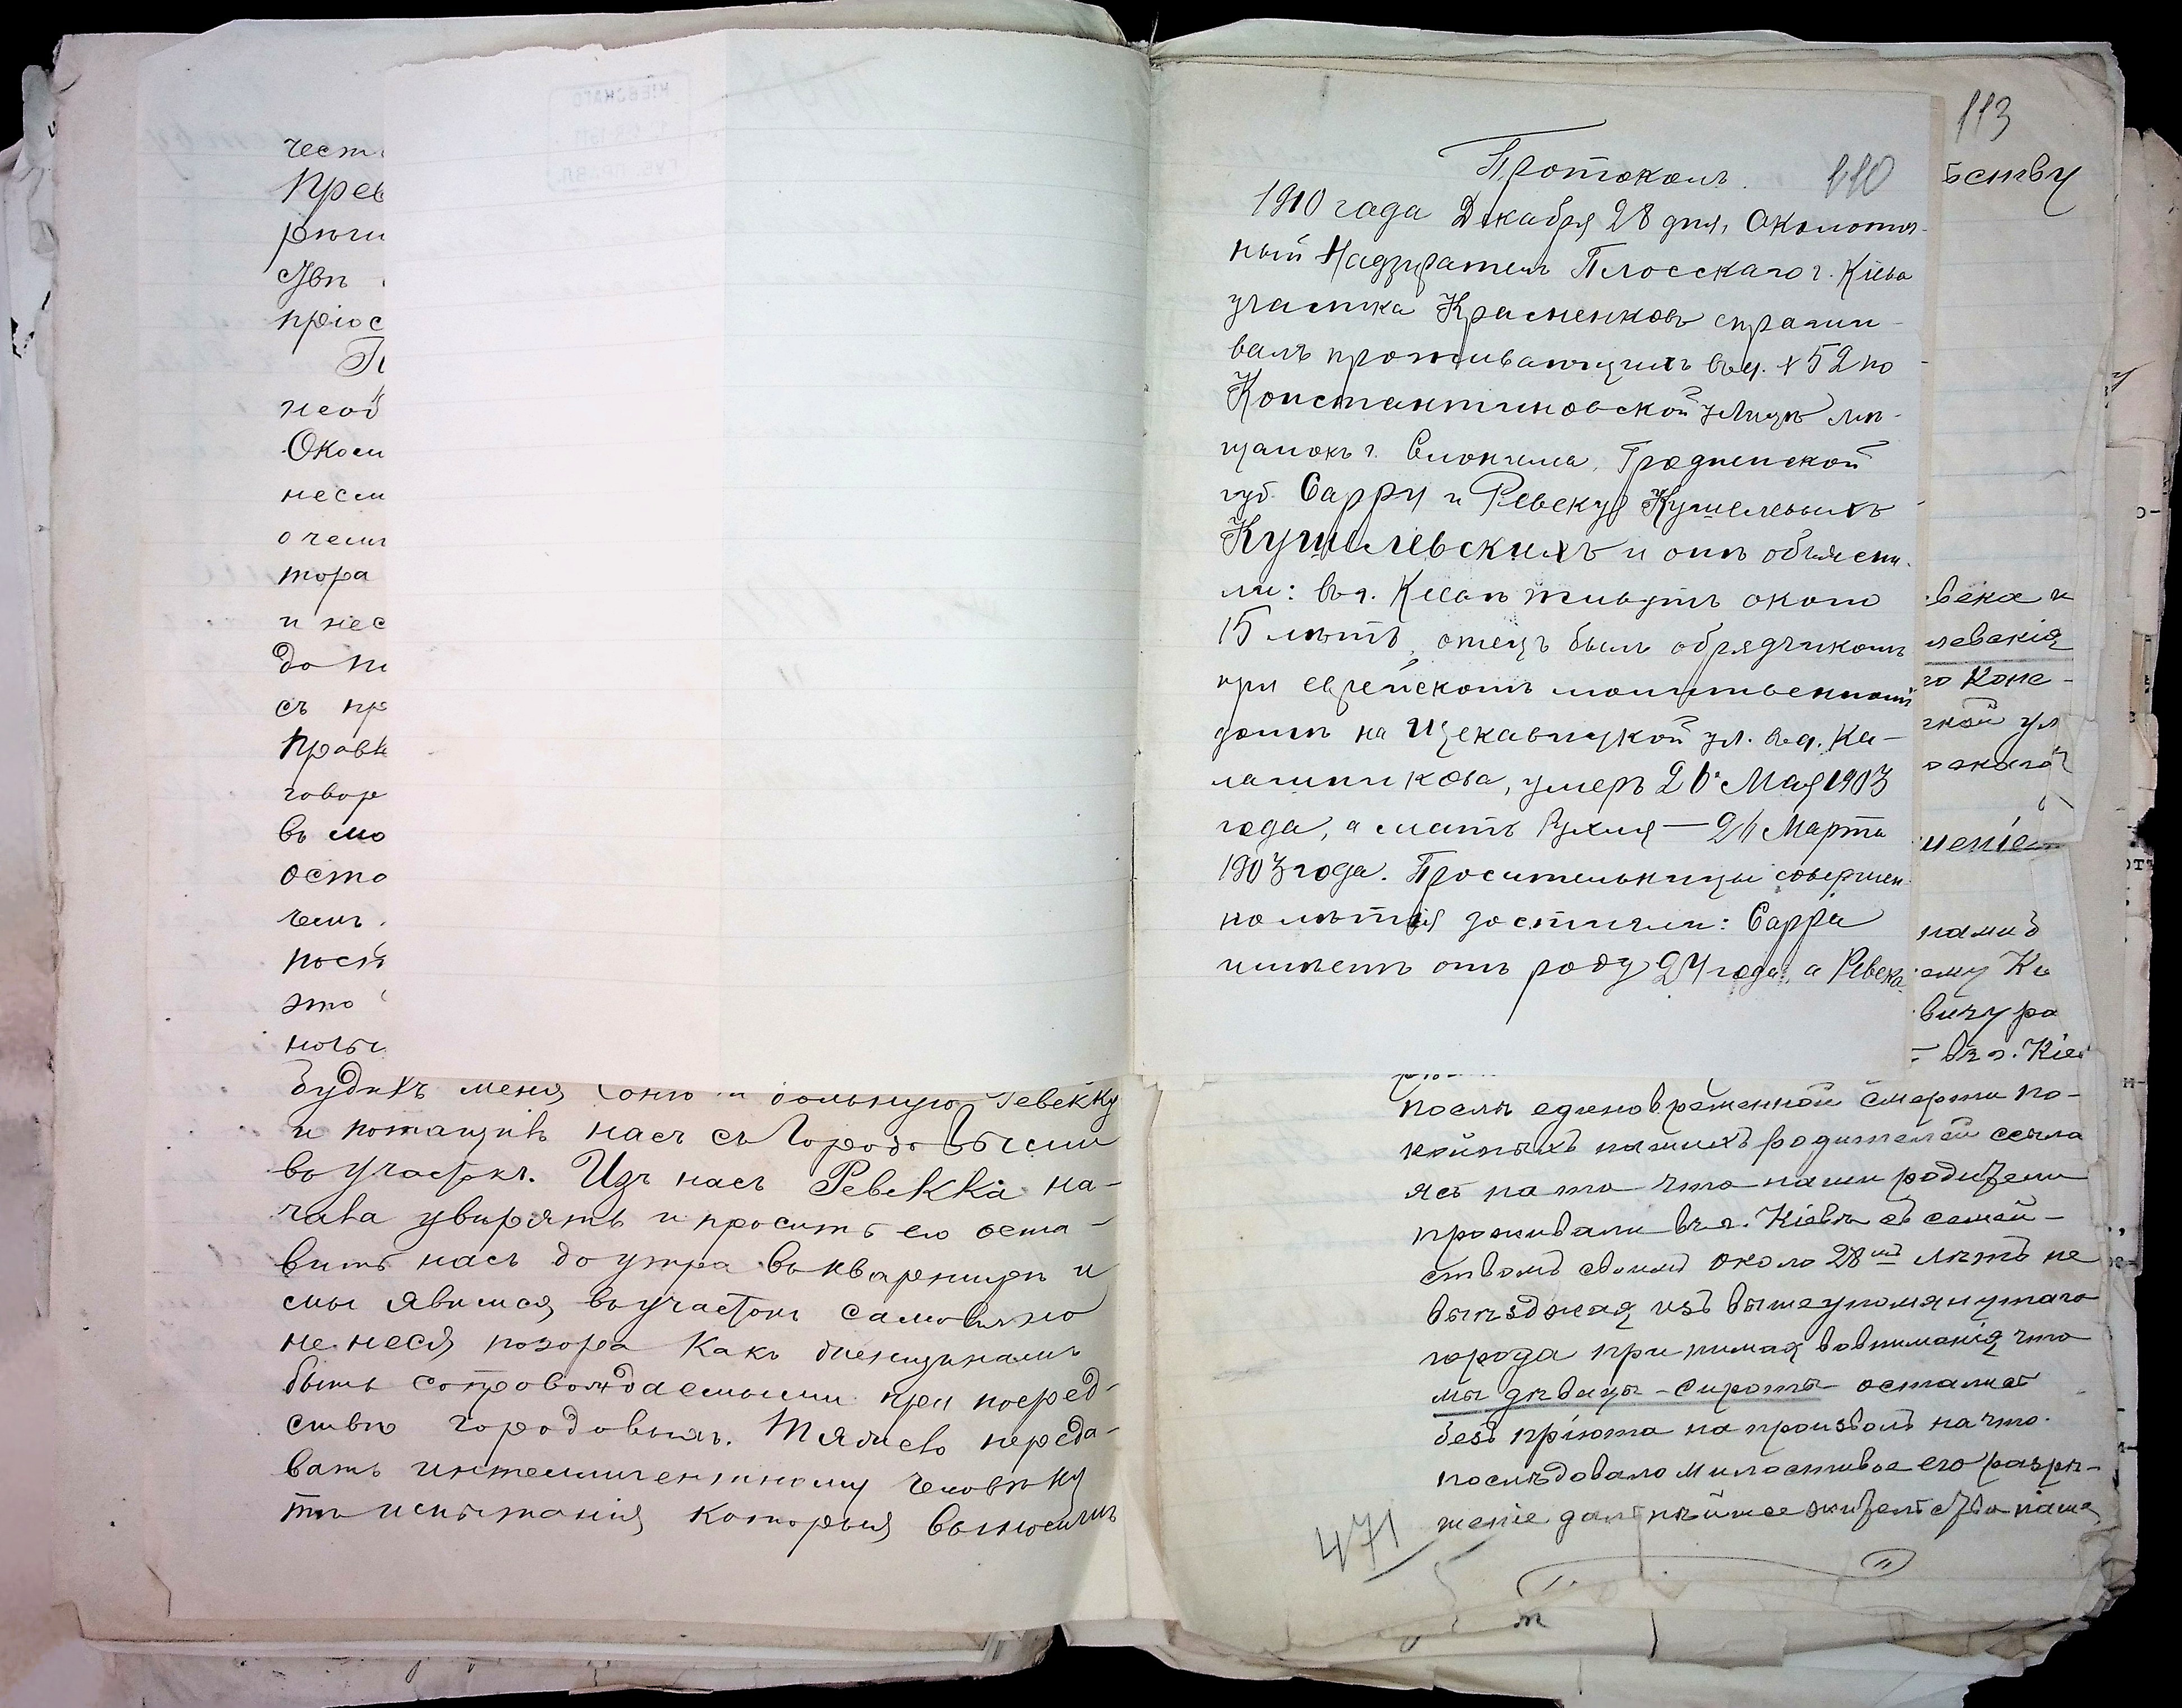 чест
Прев
рѣчи
пріос
необ
Окол
несм
очем
тора
и нес
до
съ пр
Прав
говор
въ мо
оста
чем
пост
это
ночь
будилъ меня Соню и больную Ревекку
и потащивъ насъ съ Городовыми
въ участокъ. Изъ насъ Ревекка на-
чала увѣрять и просить его оста-
вить насъ до утра въ квартирѣ и
мы явимся въ участокъ самолично
не неся позора какъ женщинамъ
быть сопровождаемыми при посред-
ствѣ городовыхъ. Тяжело переда-
вать интеллигентному человѣку
тѣ испытанія которыя выносимъ
113
Протоколъ. 110
1910 года Декабря 28 дня, Околоточ-
ный Надзиратель Плосскаго г. Кіева
участка Красненковъ спраши-
валъ проживающихъ въ д. № 52 по
Константиновской улицѣ мѣ-
щанокъ г. Слонима, Гродненской
губ. Сарру и Ревеку Кушелевыхъ
Кушелевскихъ и онѣ объясни-
ли: въ г. Кіевѣ живутъ около
15 лѣтъ, отецъ былъ обрядчикомъ
при еврейскомъ молитвенномъ
домѣ на Щекавицкой ул. въ д. Ка-
лашникова, умеръ 26 Мая 1903
года, а мать Рухля — 26 Марта
1903 года. Просительницы совершен-
нолѣтія достигли: Сарра
имѣетъ отъ роду 24 года, а Ревека
ству
века и
левскія
Конс-
ской ул
шеніе
нами
ему Кі
вичу ра
въ г. Кіев
послѣ единовременной смерти по-
койныхъ нашихъ родителей ссыла
ясь на то что наши родители
проживали въ г. Кіевѣ съ семей-
ствомъ своимъ около 28ми лѣтъ не
выѣзжая изъ вышеупомянутаго
города принимая вовниманія что
мы дѣвицы-сироты остались
безъ пріюта на произволъ на что
послѣдовало милостивое его разрѣ-
шеніе дальнѣйшее жительство наше
471